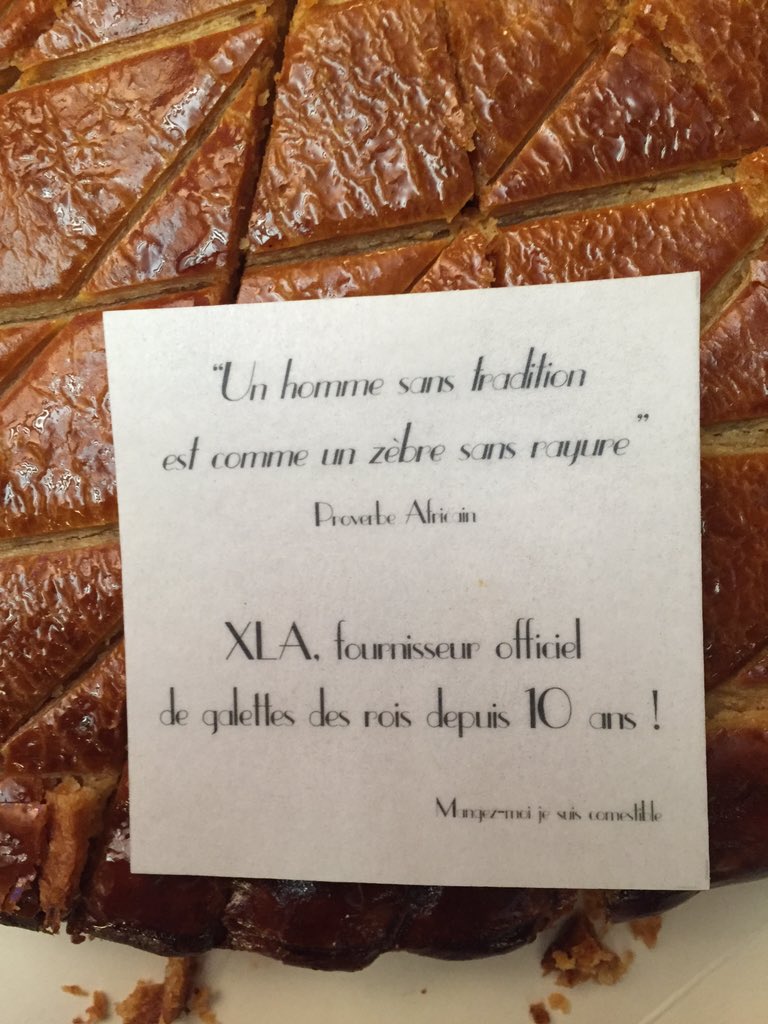 “Un homme sans tradition
est comme un zèbre sans rayure”
Proverbe Africain
XLA, fournisseur officiel
de galettes des rois depuis 10 ans !
Mangez-moi je suis comestible